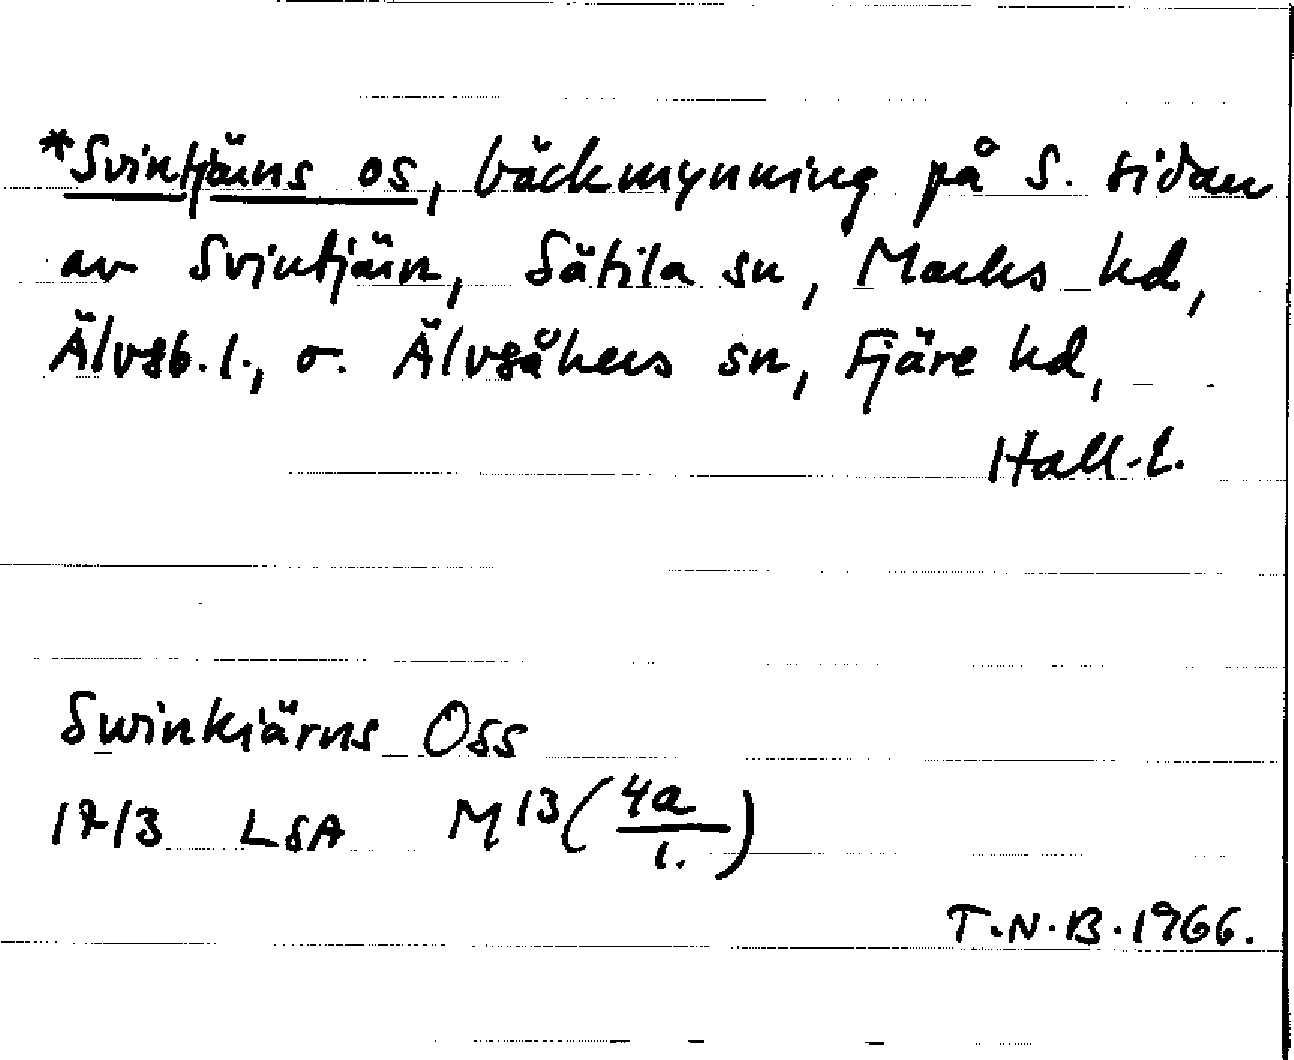 *Svintjäns os, bäckmynning på S. sidan
av Svintjän, Sätila sn, Marks hd,
Älvsb. l., o. Älvsåkers sn, Fjäre hd,
Hall. l.
Swinkiärns Oss
1713 LSA M13 (4a/1.)
T.N.B. 1966.